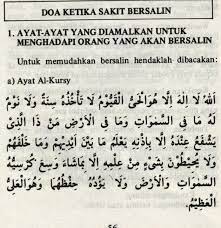 DOA KETIKA SAKIT BERSALIN
1. AYAT-AYAT YANG DIAMALKAN UNTUK
MENGHADAPI ORANG YANG AKAN BERSALIN
Untuk memudahkan bersalin hendaklah dibacakan:
a) Ayat Al-Kursy
اَللهُ لاَ اِلٰهَ اِلاَّ هُوَ الْحَيُّ الْقَيُّوْمُ لاَ تَأْخُذُهُ سِنَةٌ وَلاَ نَوْمٌ
لَهُ مَا فِى السَّمٰوَاتِ وَمَا فِى الْاَرْضِ مَنْ ذَا الَّذِيْ
يَشْفَعُ عِنْدَهُ اِلاَّ بِاِذْنِهِ يَعْلَمُ مَا بَيْنَ اَيْدِيْهِمْ وَمَا خَلْفَهُمْ
وَلاَ يُحِيْطُوْنَ بِشَيْءٍ مِنْ عِلْمِهِ اِلاَّ بِمَا شَاءَ وَسِعَ كُرْسِيُّهُ
السَّمٰوَاتِ وَالْاَرْضَ وَلاَ يَؤُدُهُ حِفْظُهُمَا وَهُوَ الْعَلِيُّ
الْعَظِيْمُ.
56